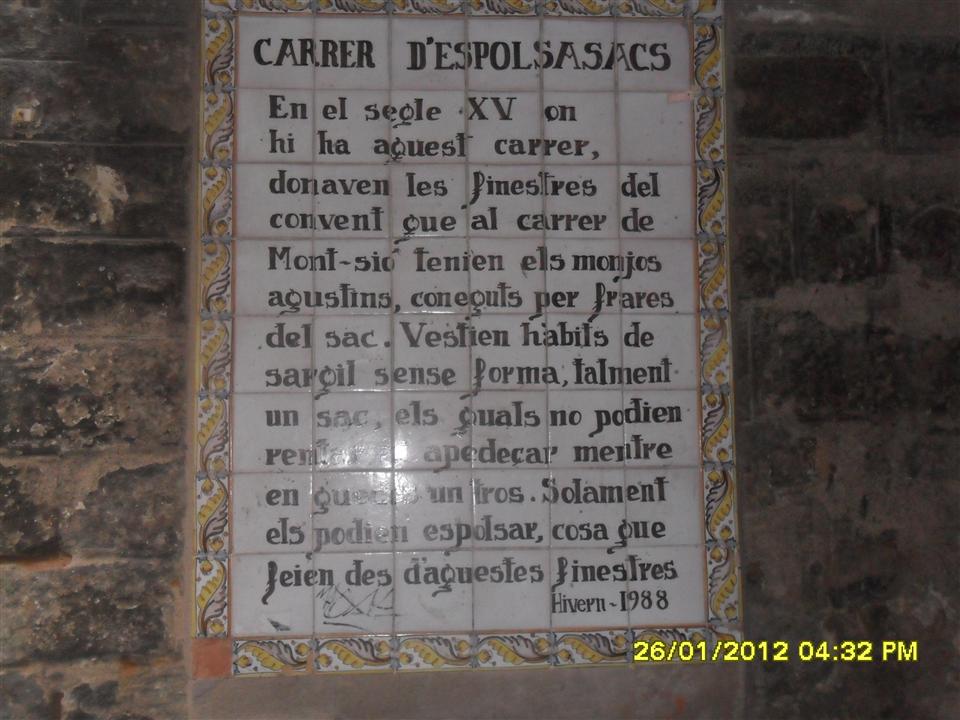 CARRER D'ESPOLSASACS
En el segle XV on
hi ha aquest carrer,
donaven les finestres del
convent que al carrer de
Mont-sió tenien els monjos
agustins, coneguts per frares
del sac. Vestien hàbits de
sargil sense forma, talment
un sac, els quals no podien
rentar apedeçar mentre
en un tros. Solament
els podien espolsar, cosa que
feien des d'aquestes finestres
Hivern-1988
26/01/2012 04:32 PM